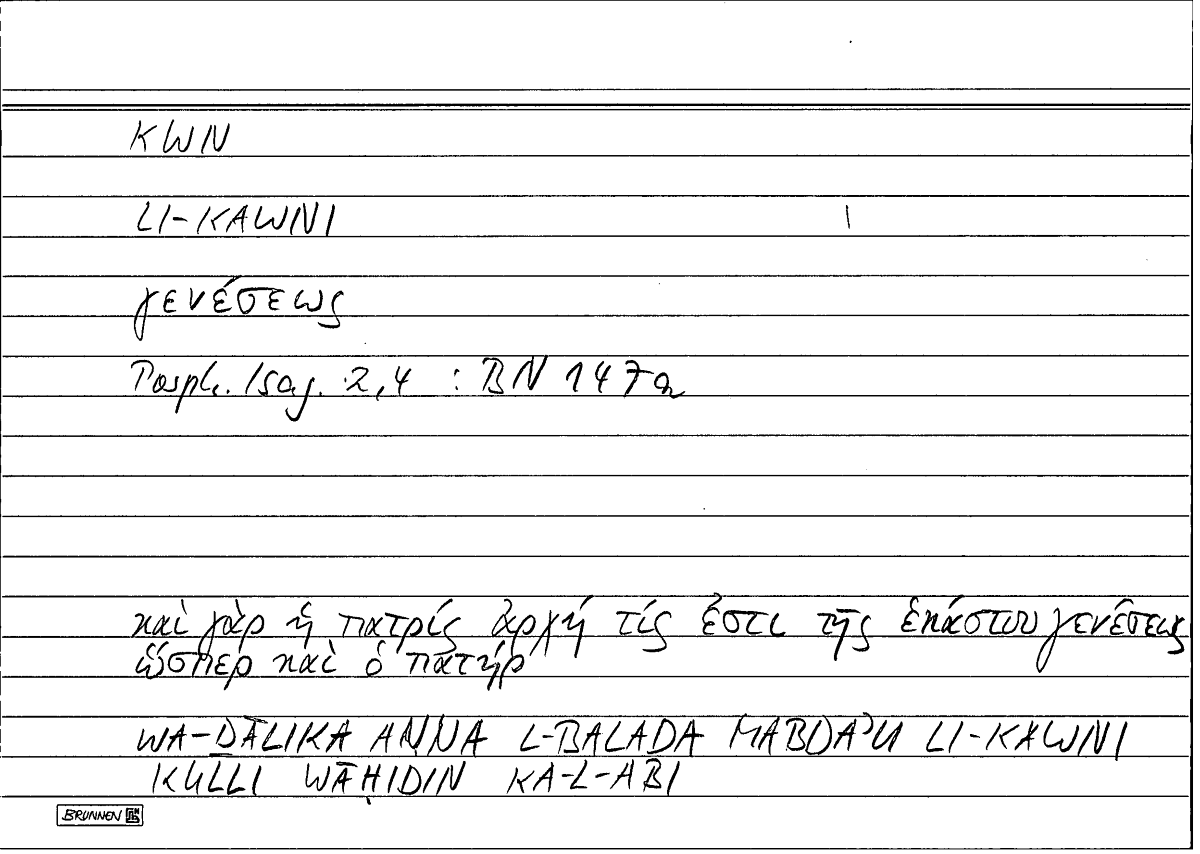 KWN
LI-KAWNI
γενέσεως
Porph. Isag. 2,4 : BN 147a
καὶ γὰρ ἡ πατρίς ἀρχή τίς ἐστι τῆς ἑκάστου γενέσεως
ὥσπερ καὶ ὁ πατήρ
WA-ḎĀLIKA ANNA L-BALADA MABDA'U LI-KAWNI
KULLI WĀḤIDIN KA-L-ABI
BRUNNEN